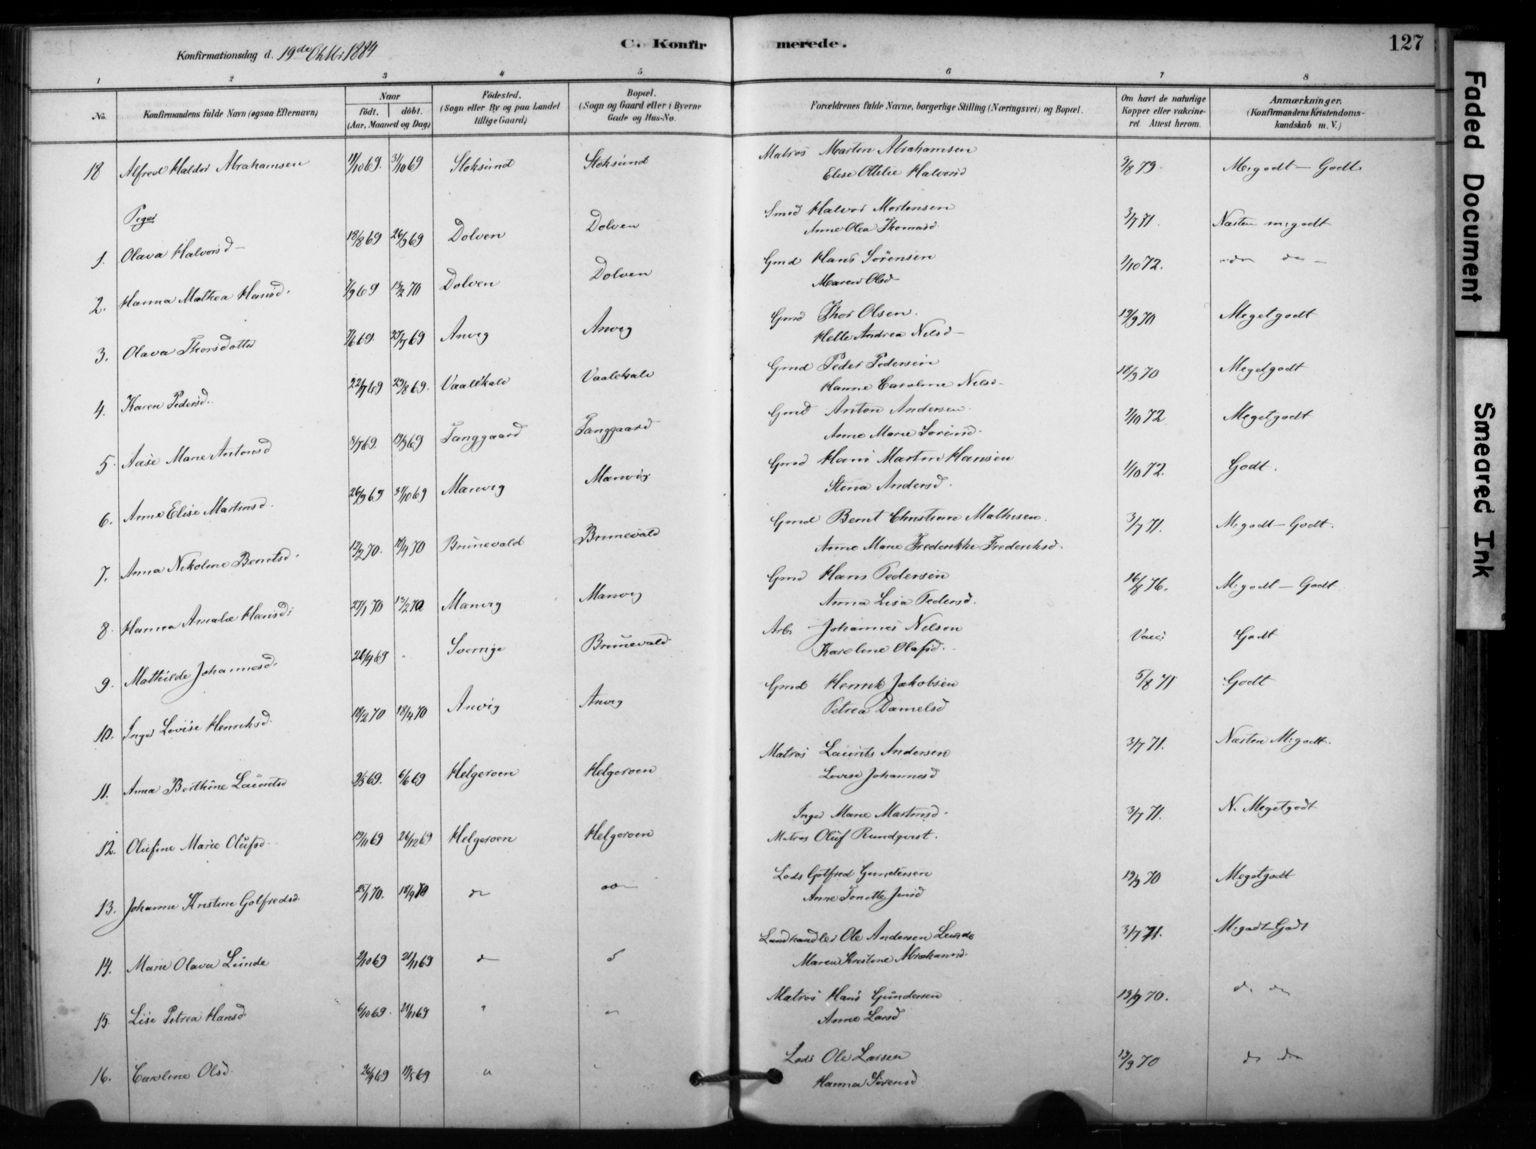 Konfirmationsdag d. 19de Oktbr 1884
C. Konfirmerede.
127
1 2 3 4 5 6 7 8
No.
Konfirmandens fulde Navn (ogsaa Efternavn)
Naar
født. døbt.
(Aar, Maaned og Dag)
Fødested.
(Sogn eller By og paa Landet
tillige Gaard)
Bopæl.
(Sogn og Gaard eller i Byerne
Gade og Hus-No.
Forældrenes fulde Navne, borgerlige Stilling (Næringsvei) og Bopæl.
Om havt de naturlige
Kopper eller vakcine-
ret. Attest herom.
Anmærkninger.
(Konfirmandens Kristendoms-
kundskab m. V.)
18 Alfred Haldor Abrahamsen 11/10 69. 31/10 69 Stoksund Stoksund Matros Martin Abrahamsen 2/8 79. M.godt - Godt.
Elise Otilie Halvorsd
Piger
1. Olava Halvorsd 18/8 69 26/9 69 Dolven Dolven Smed Halvor Mortensen 3/7 71 Næsten m.godt
Anne Olea Thomasd
2. Hanna Mathea Hansd. 7/9 69 13/2 70 Dolven Dolven Gmd Hans Sørensen 1/10 72. do do
Maren Olsd
3. Olava Thorsdatter 7/6 69 25/7 69 Anvig Anvig Gmd Thor Olsen. 19/9 70 Megetgodt
Helle Andrea Nilsd
4. Karen Pedersd. 22/7 69 29/8 69. Vaalekale Vaalekale Gmd Peder Pedersen 18/9 70 Megetgodt
Hanne Caroline Nilsd
5. Aase Marie Antonsd 3/7 69. 19/9 69 Fanggaard Fanggaard Gmd Anton Andersen. 1/10 72 Megetgodt
Anne Marie Sørensd.
6. Anne Elise Martinsd. 26/9 69 31/10 69 Manvig Manvig Gmd Hans Martin Hansen 1/10 72. Godt.
Stina Andersd.
7. Anna Nikoline Berntsd. 12/2 70. 18/4 70 Brunevald Brunevald Gmd Bernt Christian Mathisen. 3/7 71. M.godt - Godt.
Anne Marie Frederikke Frederiksd.
8. Hanna Amalie Hansd. 27/1 70 13/2 70 Manvig Manvig Gmd Hans Pedersen 16/8 76. M.godt - Godt
Anna Lisa Pedersd.
9. Mathilde Johannesd. 28/9 69 - Sverrige Brunevald Arb. Johannes Nilsen Vacc Godt
Karoline Olafsd.
10. Inger Lovise Henriksd. 19/2 70 18/4 70 Anvig Anvig Gmd Henrik Jakobsen 5/8 71 Godt
Petrea Danielsd
11. Anna Berthine Lauritsd 2/5 69. 6/6 69 Helgeroen Helgeroen Matros Laurits Andersen 3/7 71. Næsten M.godt.
Lovise Johannesd
12. Olufine Marie Olufsd. 19/11 69 26/12 69 Helgeroen Helgeroen Inger Marie Martinsd. 3/7 71. N. Megetgodt
Matros Oluf Rundqvist.
13. Johanne Kristine Gotfredsd 25/1 70. 18/4 70 do do Lods Gotfred Gundersen 19/9 70 Megetgodt
Anne Tonette Jensd
14. Marie Olava Lunde 2/10 69 21/11 69 do do Landhandler Ole Andersen Lunde 3/7 71. M.godt-Godt
Maren Kristine Abrahamsd
15. Lise Petrea Hansd. 6/10 69. 21/11 69 " " Matros Hans Gundersen 19/9 70. do do
Anne Larsd
16. Caroline Olsd. 26/4 69 17/5 69 " " Lods Ole Larsen 19/9 70 do do
Hanna Sørensd
Faded Document
Smeared Ink